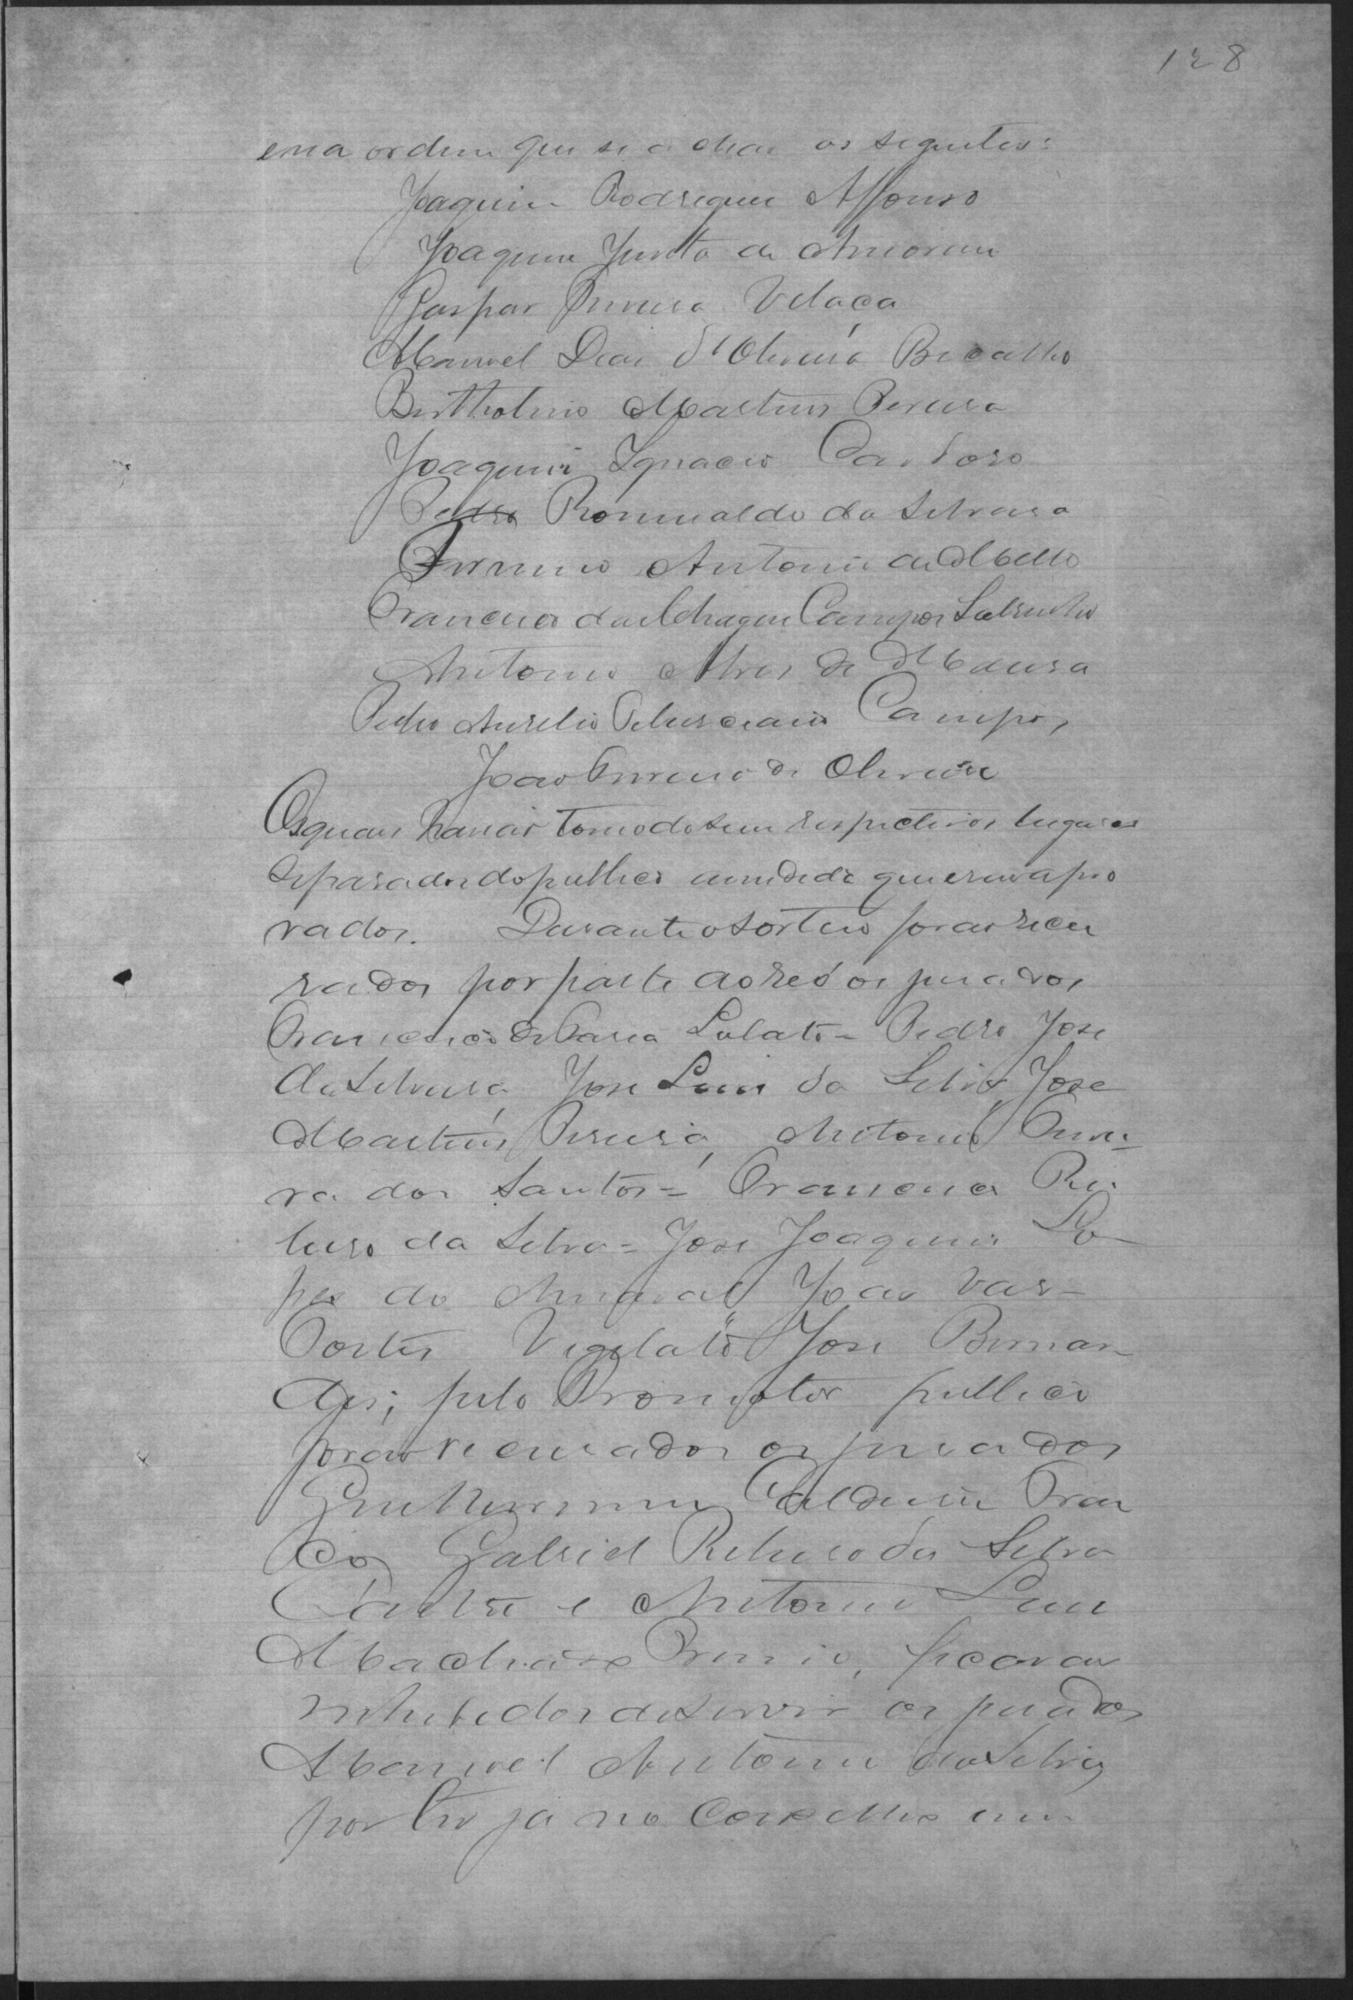 128
e na ordem que se achão os seguintes:
Joaquim Rodrigues Affonso
Joaquim Justo de Amorim
Gaspar Ferreira Vilaca
Manoel Dias d'Oliveira Bicalho
Bertholino Martins Pereira
Joaquim Ignacio Cardoso
Pedro Romualdo da Silveira
Firmino Antonio de Mello
Francisco das Chagas Campos Sobrinho
Antonio Alves de Moura
Pedro Aurelio Campos
João Ferreira de Oliveira
Os quaes hauião tomado seus respectivos lugares
separados do publico a medida que erão apro
vados. Durante o sorteio forão recu
zados por parte do Reo os jurados
Francisco de Paula Lobato = Pedro Jose
da Silveira, Jose Luis da Silva, Jose
Martins Pereira, Antonio Ferrei-
ra dos Santos = Francisco Ri
beiro da Silva = Jose Joaquim Lo-
pes do Amaral João Vas-
Cortes Vigilato Jose Bernar-
des; pelo Promotor publico
forão recusados os jurados
Guilhermino Caldeira Fran
co, Gabriel Ribeiro da Silva
e Antonio Luis
Machado ficarão
inhibidos de servir os jurados
Manoel Antonio da Silva
por ter já no Conselho um